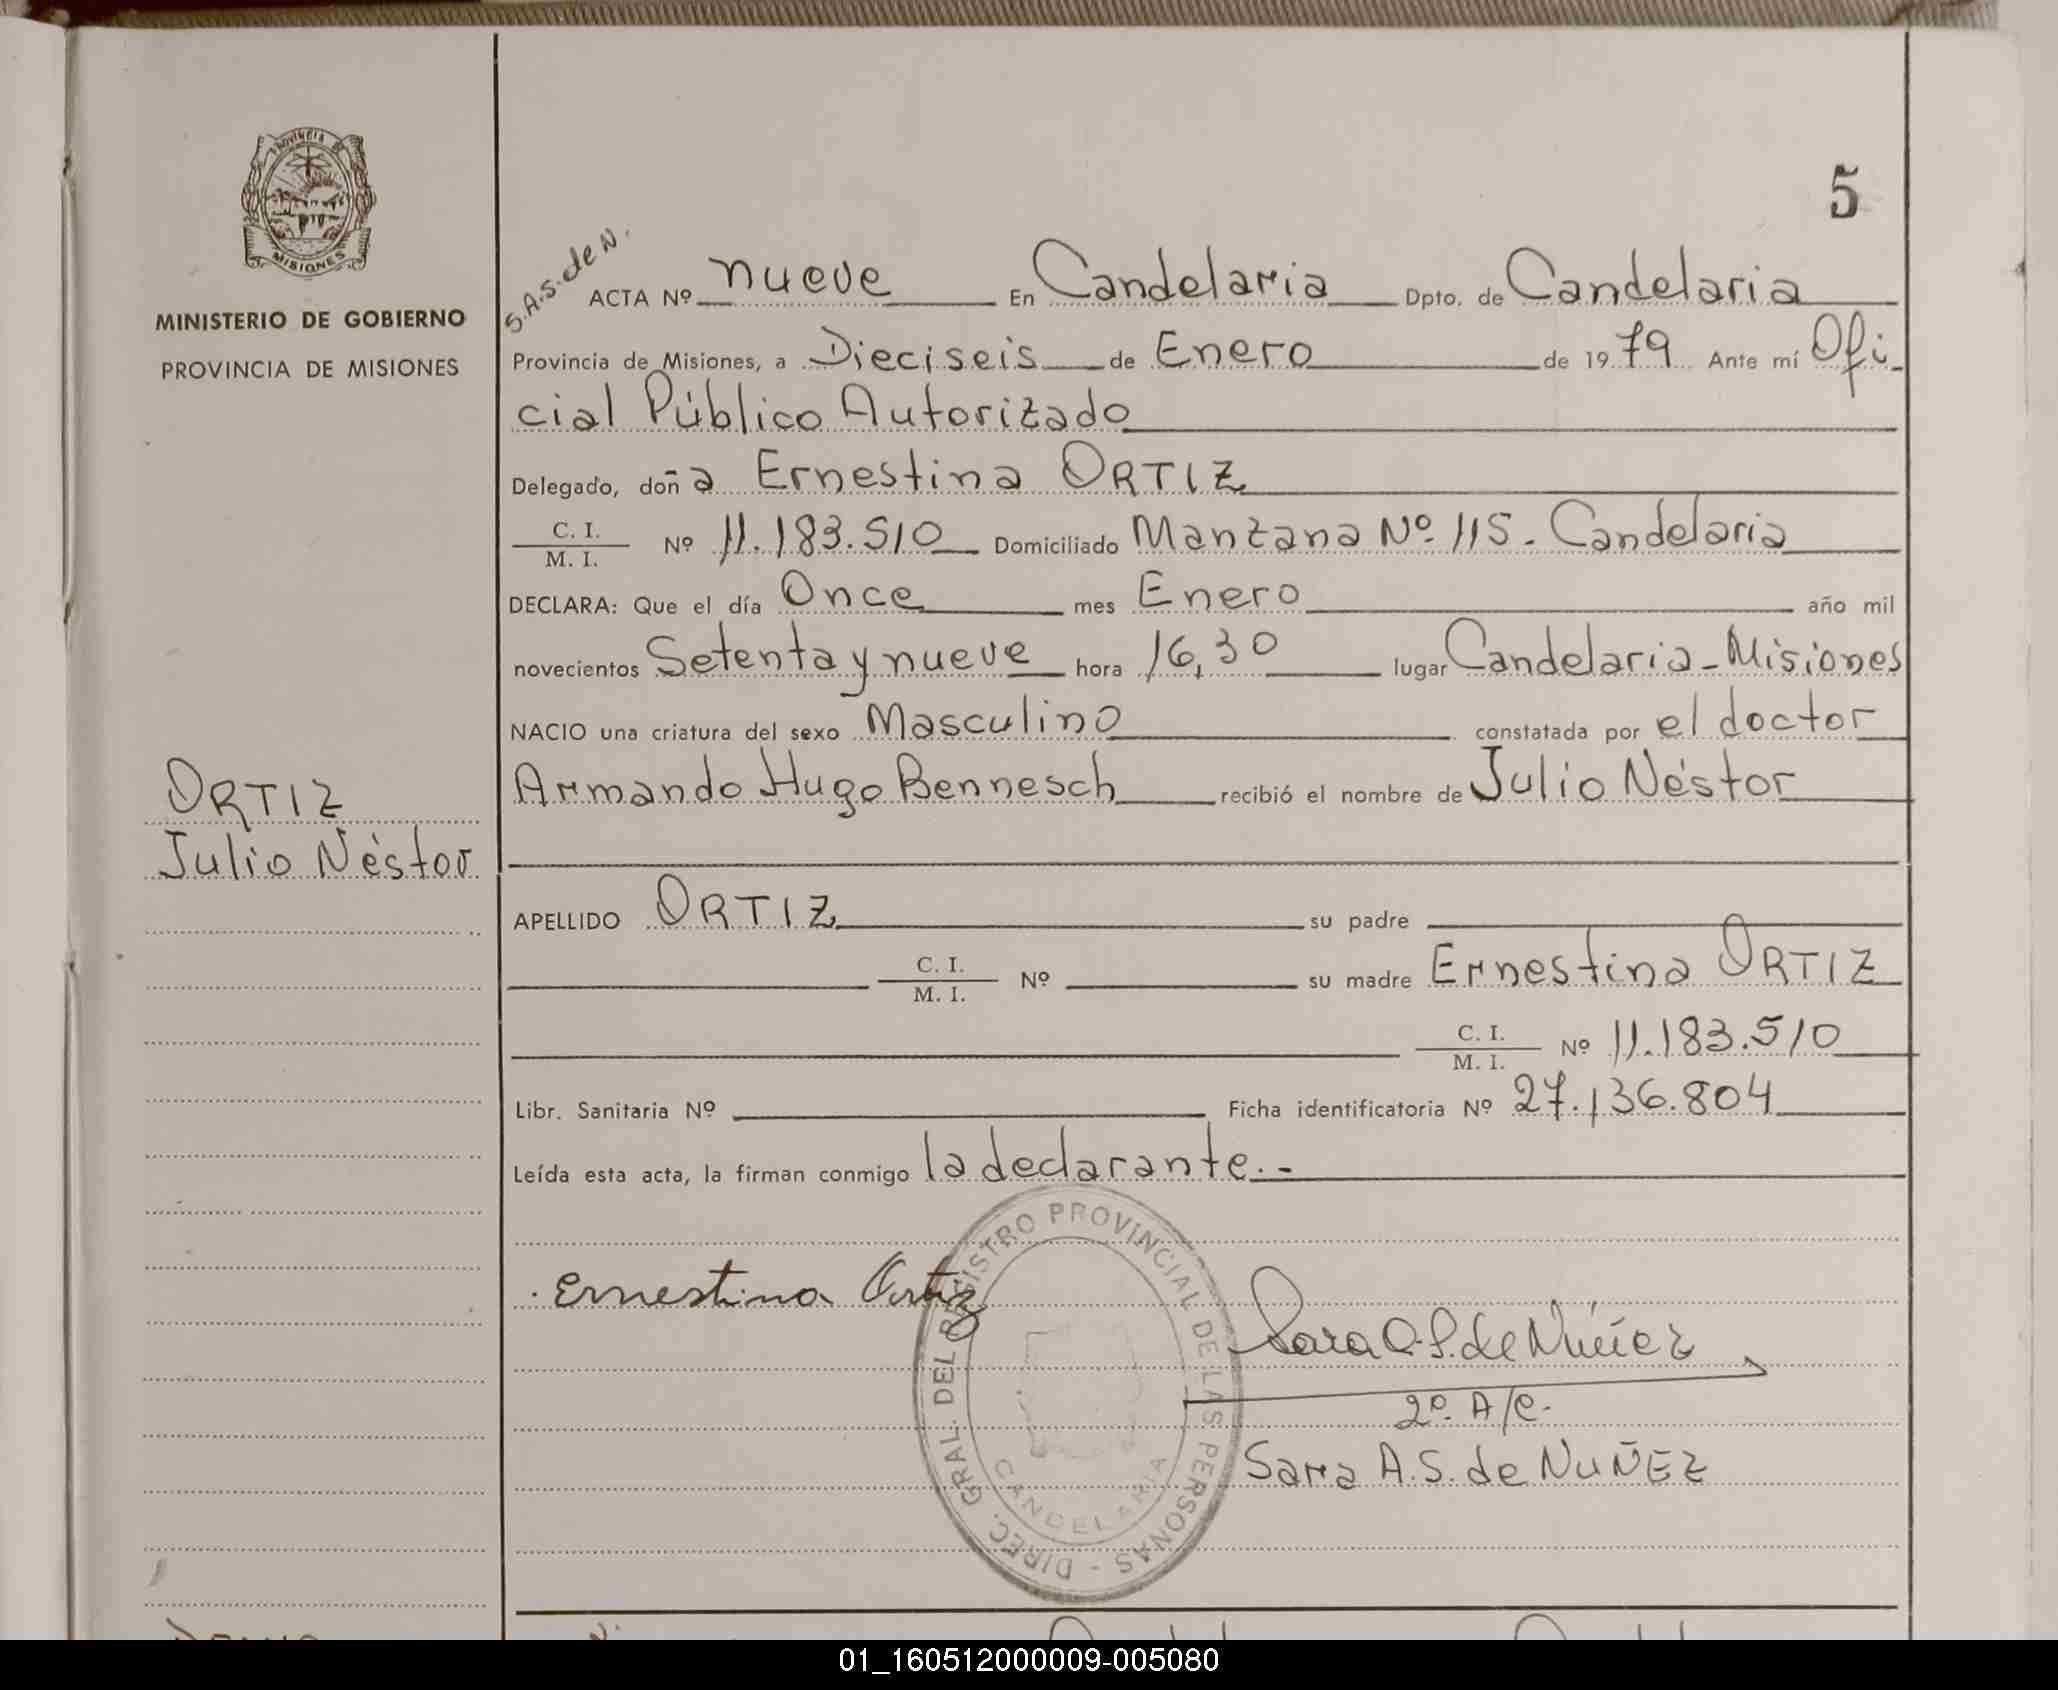 PROVINCIA DE
MISIONES
MINISTERIO DE GOBIERNO
PROVINCIA DE MISIONES
5
S.A.S. de N.
ACTA Nº nueve En Candelaria Dpto. de Candelaria
Provincia de Misiones, a Dieciseis de Enero de 1979 Ante mí Ofi
cial Público Autorizado
Delegado, doña Ernestina ORTIZ
C. I.
M. I. Nº 11.183.510 Domiciliado Manzana Nº 115 - Candelaria
DECLARA: Que el día Once mes Enero año mil
novecientos Setenta y nueve hora 16,30 lugar Candelaria - Misiones
NACIO una criatura del sexo Masculino constatada por el doctor
Armando Hugo Bennesch recibió el nombre de Julio Néstor
ORTIZ
Julio Néstor
APELLIDO ORTIZ su padre
C. I.
M. I. Nº su madre Ernestina ORTIZ
C. I.
M. I. Nº 11.183.510
Libr. Sanitaria Nº Ficha identificatoria Nº 27.136.804
Leída esta acta, la firman conmigo la declarante.-
Ernestina Ortiz
DIREC. GRAL. DEL REGISTRO PROVINCIAL DE LAS PERSONAS -
CANDELARIA
Sara A. S. de Núñez
2º A/C.
Sara A.S. de NUÑEZ
01_160512000009-005080